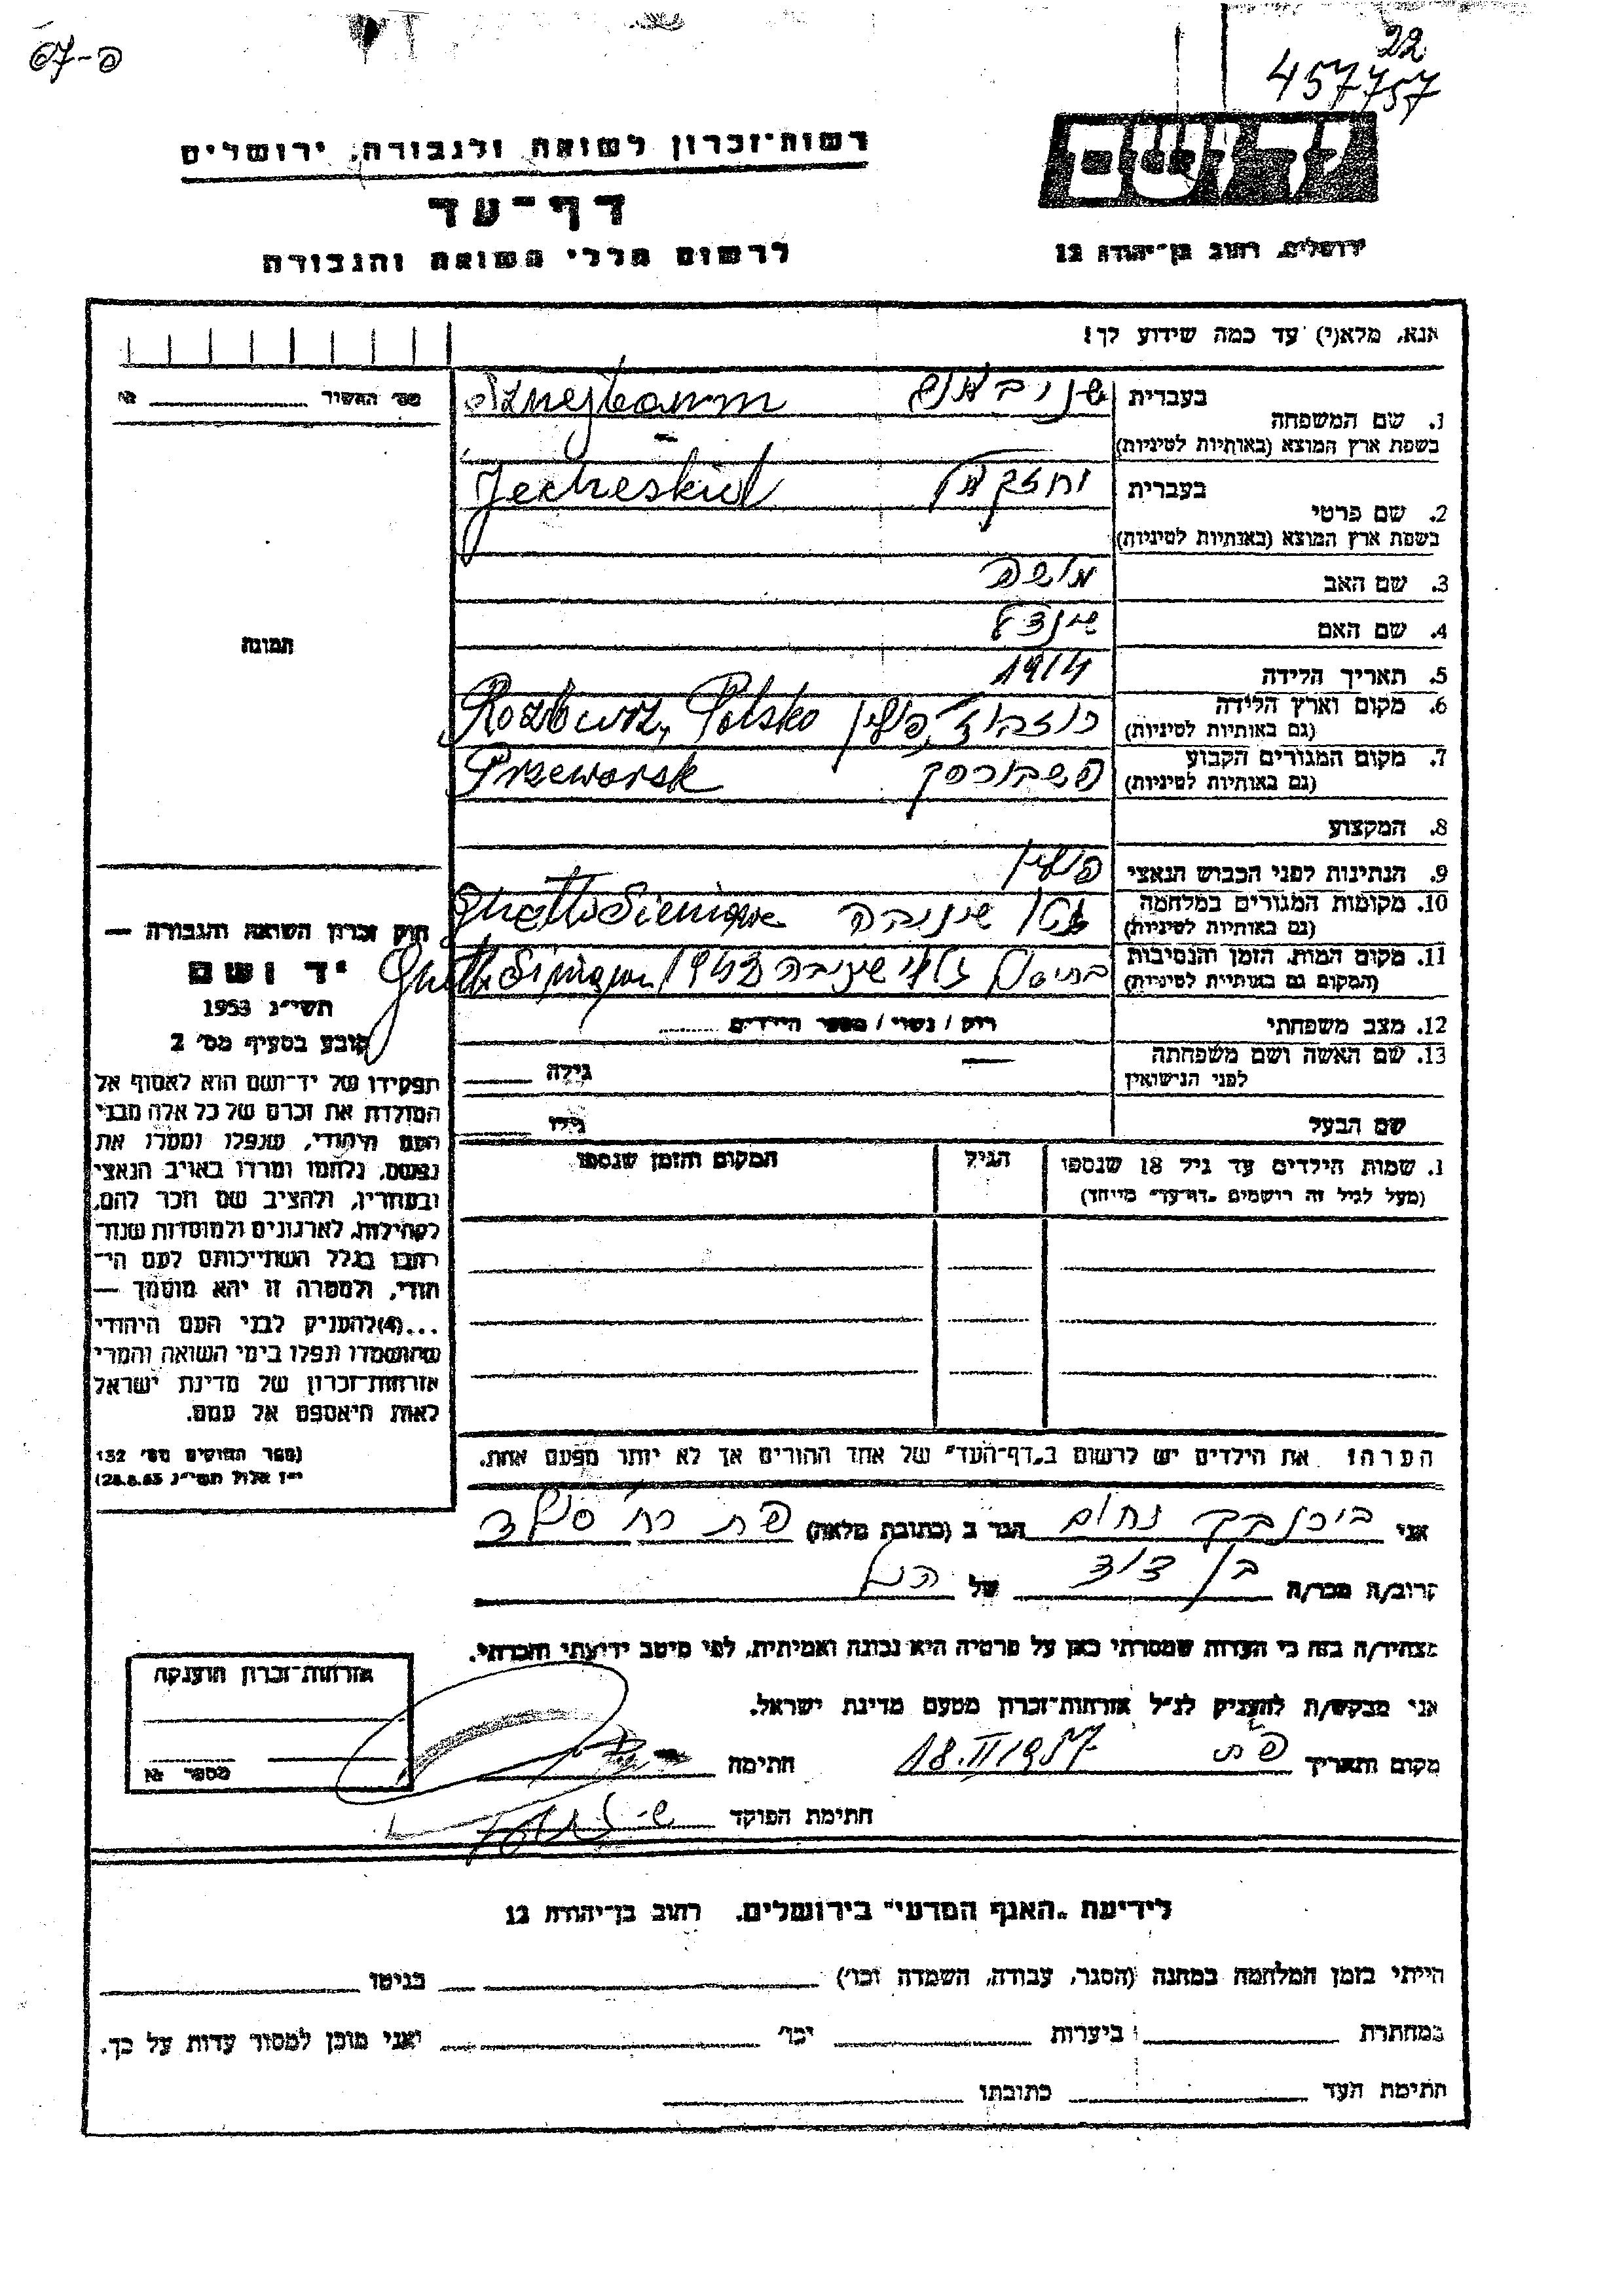 פ-67
22
457757
יד ושם
רשות־זכרון לשואה ולגבורה, ירושלים
דף־עד
לרשום חללי השואה והגבורה
ירושלים, רחוב בן־יהודה 12
אנא, מלא(י) עד כמה שידוע לך!
מס' התשיר № ________
1. שם המשפחה
בעברית
Sznejbaum
בשפת ארץ המוצא (באותיות לטיניות)
2. שם פרטי
בעברית יחזקאל
Jecheskiel
בשפת ארץ המוצא (באותיות לטיניות)
3. שם האב משה
4. שם האם שינדל
5. תאריך הלידה 1914
6. מקום וארץ הלידה
(גם באותיות לטיניות) פולין Polska
7. מקום המגורים הקבוע
(גם באותיות לטיניות) פשבורסק Przeworsk
8. המקצוע
9. הנתינות לפני הכבוש הנאצי פולין
10. מקומות המגורים במלחמה
(גם באותיות לטיניות) גטו שינובה Ghetto
11. מקום המות, הזמן והנסיבות
(המקום גם באותיות לטיניות) שינובה Ghetto
12. מצב משפחתי רווק / נשוי / מספר הילדים
13. שם האשה ושם משפחתה
לפני הנישואין — גילה
שם הבעל גילו
1. שמות הילדים עד גיל 18 שנספו הגיל המקום והזמן שנספו
(מעל לגיל זה רושמים „דף־עד” מיוחד)
הערה! את הילדים יש לרשום ב„דף־העד” של אחד ההורים אך לא יותר מפעם אחת.
תמונה
חוק זכרון השואה והגבורה —
יד ושם
תשי״ג 1953
קובע בסעיף מס' 2
תפקידו של יד־ושם הוא לאסוף אל
המולדת את זכרם של כל אלה מבני
העם היהודי, שנפלו ומסרו את
נפשם, נלחמו ומרדו באויב הנאצי
ובעוזריו, ולהציב שם וזכר להם,
לקהילות, לארגונים ולמוסדות שנח־
רבו בגלל השתייכותם לעם הי־
הודי, ולמטרה זו יהא מוסמך —
...(4)להעניק לבני העם היהודי
שהושמדו ונפלו בימי השואה והמרי
אזרחות־זכרון של מדינת ישראל
לאות היאספם אל עמם.
(ספר החוקים מס' 132
י״ז אלול תשי״ג 28.8.53)
אני נחום הגר ב (כתובת מלאה) פת רח'
קרוב/ה מכר/ה בן דוד של הנ״ל
מצהיר/ה בזה כי העדות שמסרתי כאן על פרטיה היא נכונה ואמיתית, לפי מיטב ידיעתי והכרתי.
אני מבקש/ת להעניק לנ״ל אזרחות־זכרון מטעם מדינת ישראל.
מקום ותאריך פת 18.II 1957 חתימה
חתימת הפוקד
אזרחות־זכרון הוענקה
מספר №
לידיעת „האגף המדעי” בירושלים, רחוב בן־יהודה 12
הייתי בזמן המלחמה במחנה (הסגר, עבודה, השמדה וכו') ________ בגיטו ________
במחתרת ________ ביערות ________ וכו' ________ ואני מוכן למסור עדות על כך.
חתימת העד ________ כתובתו ________